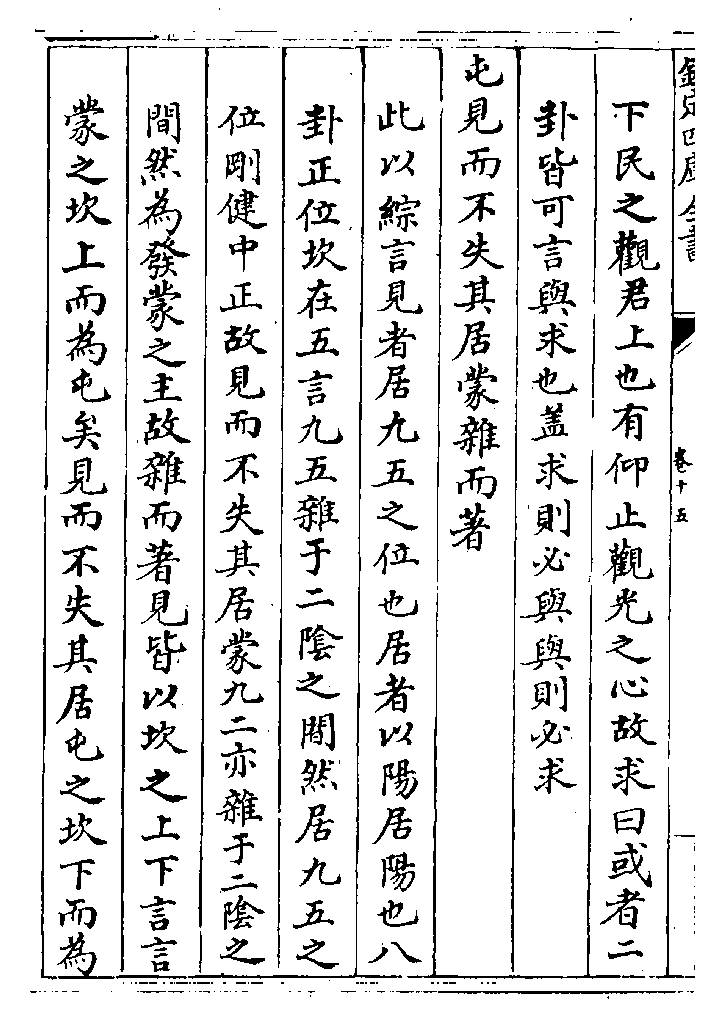 欽定四庫全書
卷十五
下民之觀君上也有仰止觀光之心故求曰或者二
卦皆可言與求也蓋求則必與與則必求
屯見而不失其居蒙雜而著
此以綜言見者居九五之位也居者以陽居陽也八
卦正位坎在五言九五雜于二陰之間然居九五之
位剛健中正故見而不失其居蒙九二亦雜于二陰之
間然為發蒙之主故雜而著見皆以坎之上下言言
蒙之坎上而為屯矣見而不失其居屯之坎下而為